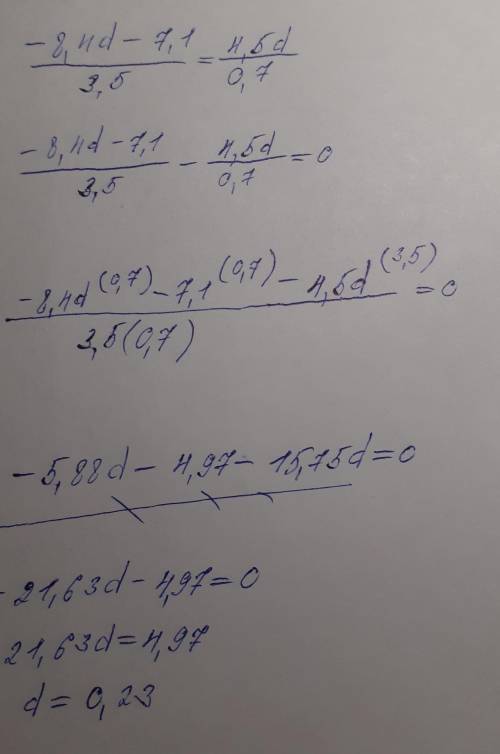 (-8,4d - 7,1)/3,5 = 4,5d/0,7
(-8,4d - 7,1)/3,5 - 4,5d/0,7 = 0
(-8,4d^(0,7) - 7,1^(0,7) - 4,5d^(3,5))/3,5(0,7) = 0
-5,88d - 4,97 - 15,75d = 0
-21,63d - 4,97 = 0
21,63d = 4,97
d = 0,23